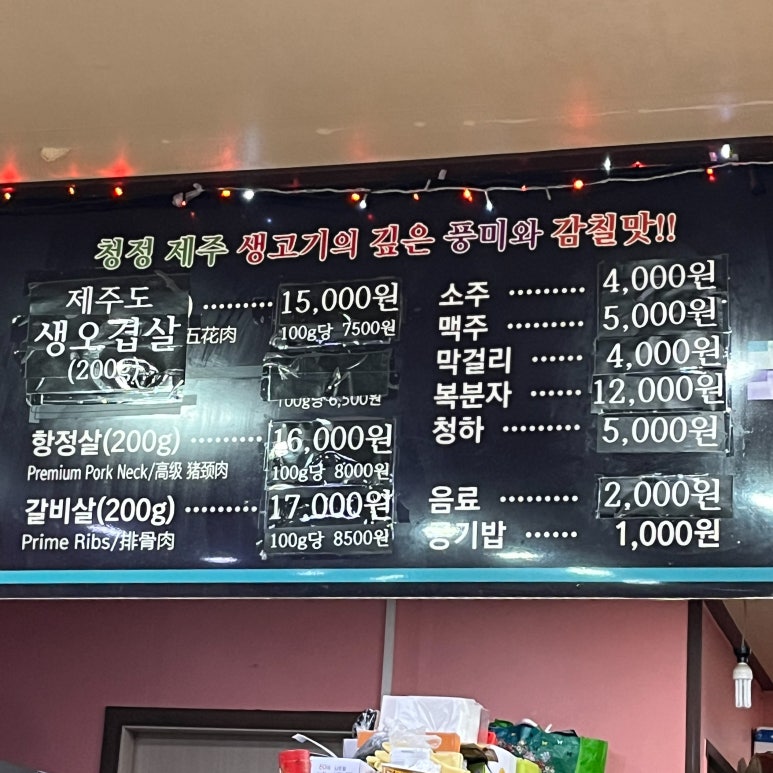 청정 제주 생고기의 깊은 풍미와 감칠맛!!
제주도
생오겹살
(200g)
) ········· 15,000원
五花肉
100g당 7500원
100g당 6,500원
항정살(200g) ········· 16,000원
Premium Pork Neck/高级 猪颈肉
100g당 8000원
갈비살(200g) ········· 17,000원
Prime Ribs/排骨肉
100g당 8500원
소주 ········· 4,000원
맥주 ········· 5,000원
막걸리 ······ 4,000원
복분자 ······ 12,000원
청하 ········· 5,000원
음료 ········· 2,000원
공기밥 ······ 1,000원